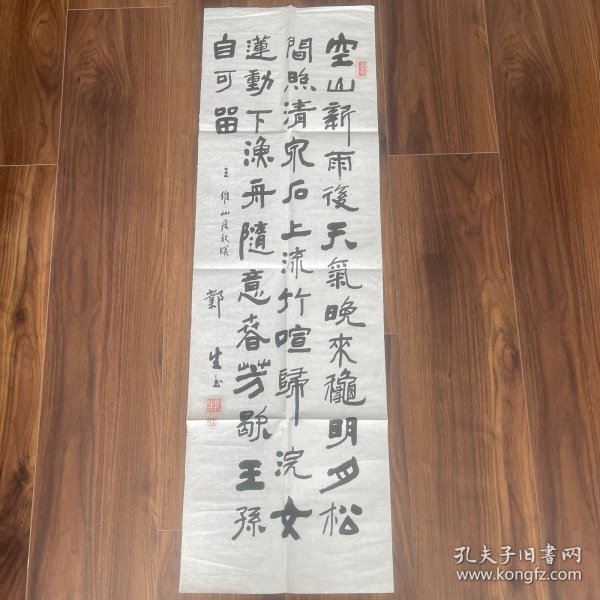 空山新雨後天氣晚來龝明月松
間照清泉石上流竹喧歸浣女
蓮動下漁舟隨意春芳歇王孫
自可留
王維山居秋暝
鄴生书
孔夫子旧书网
www.kongfz.com